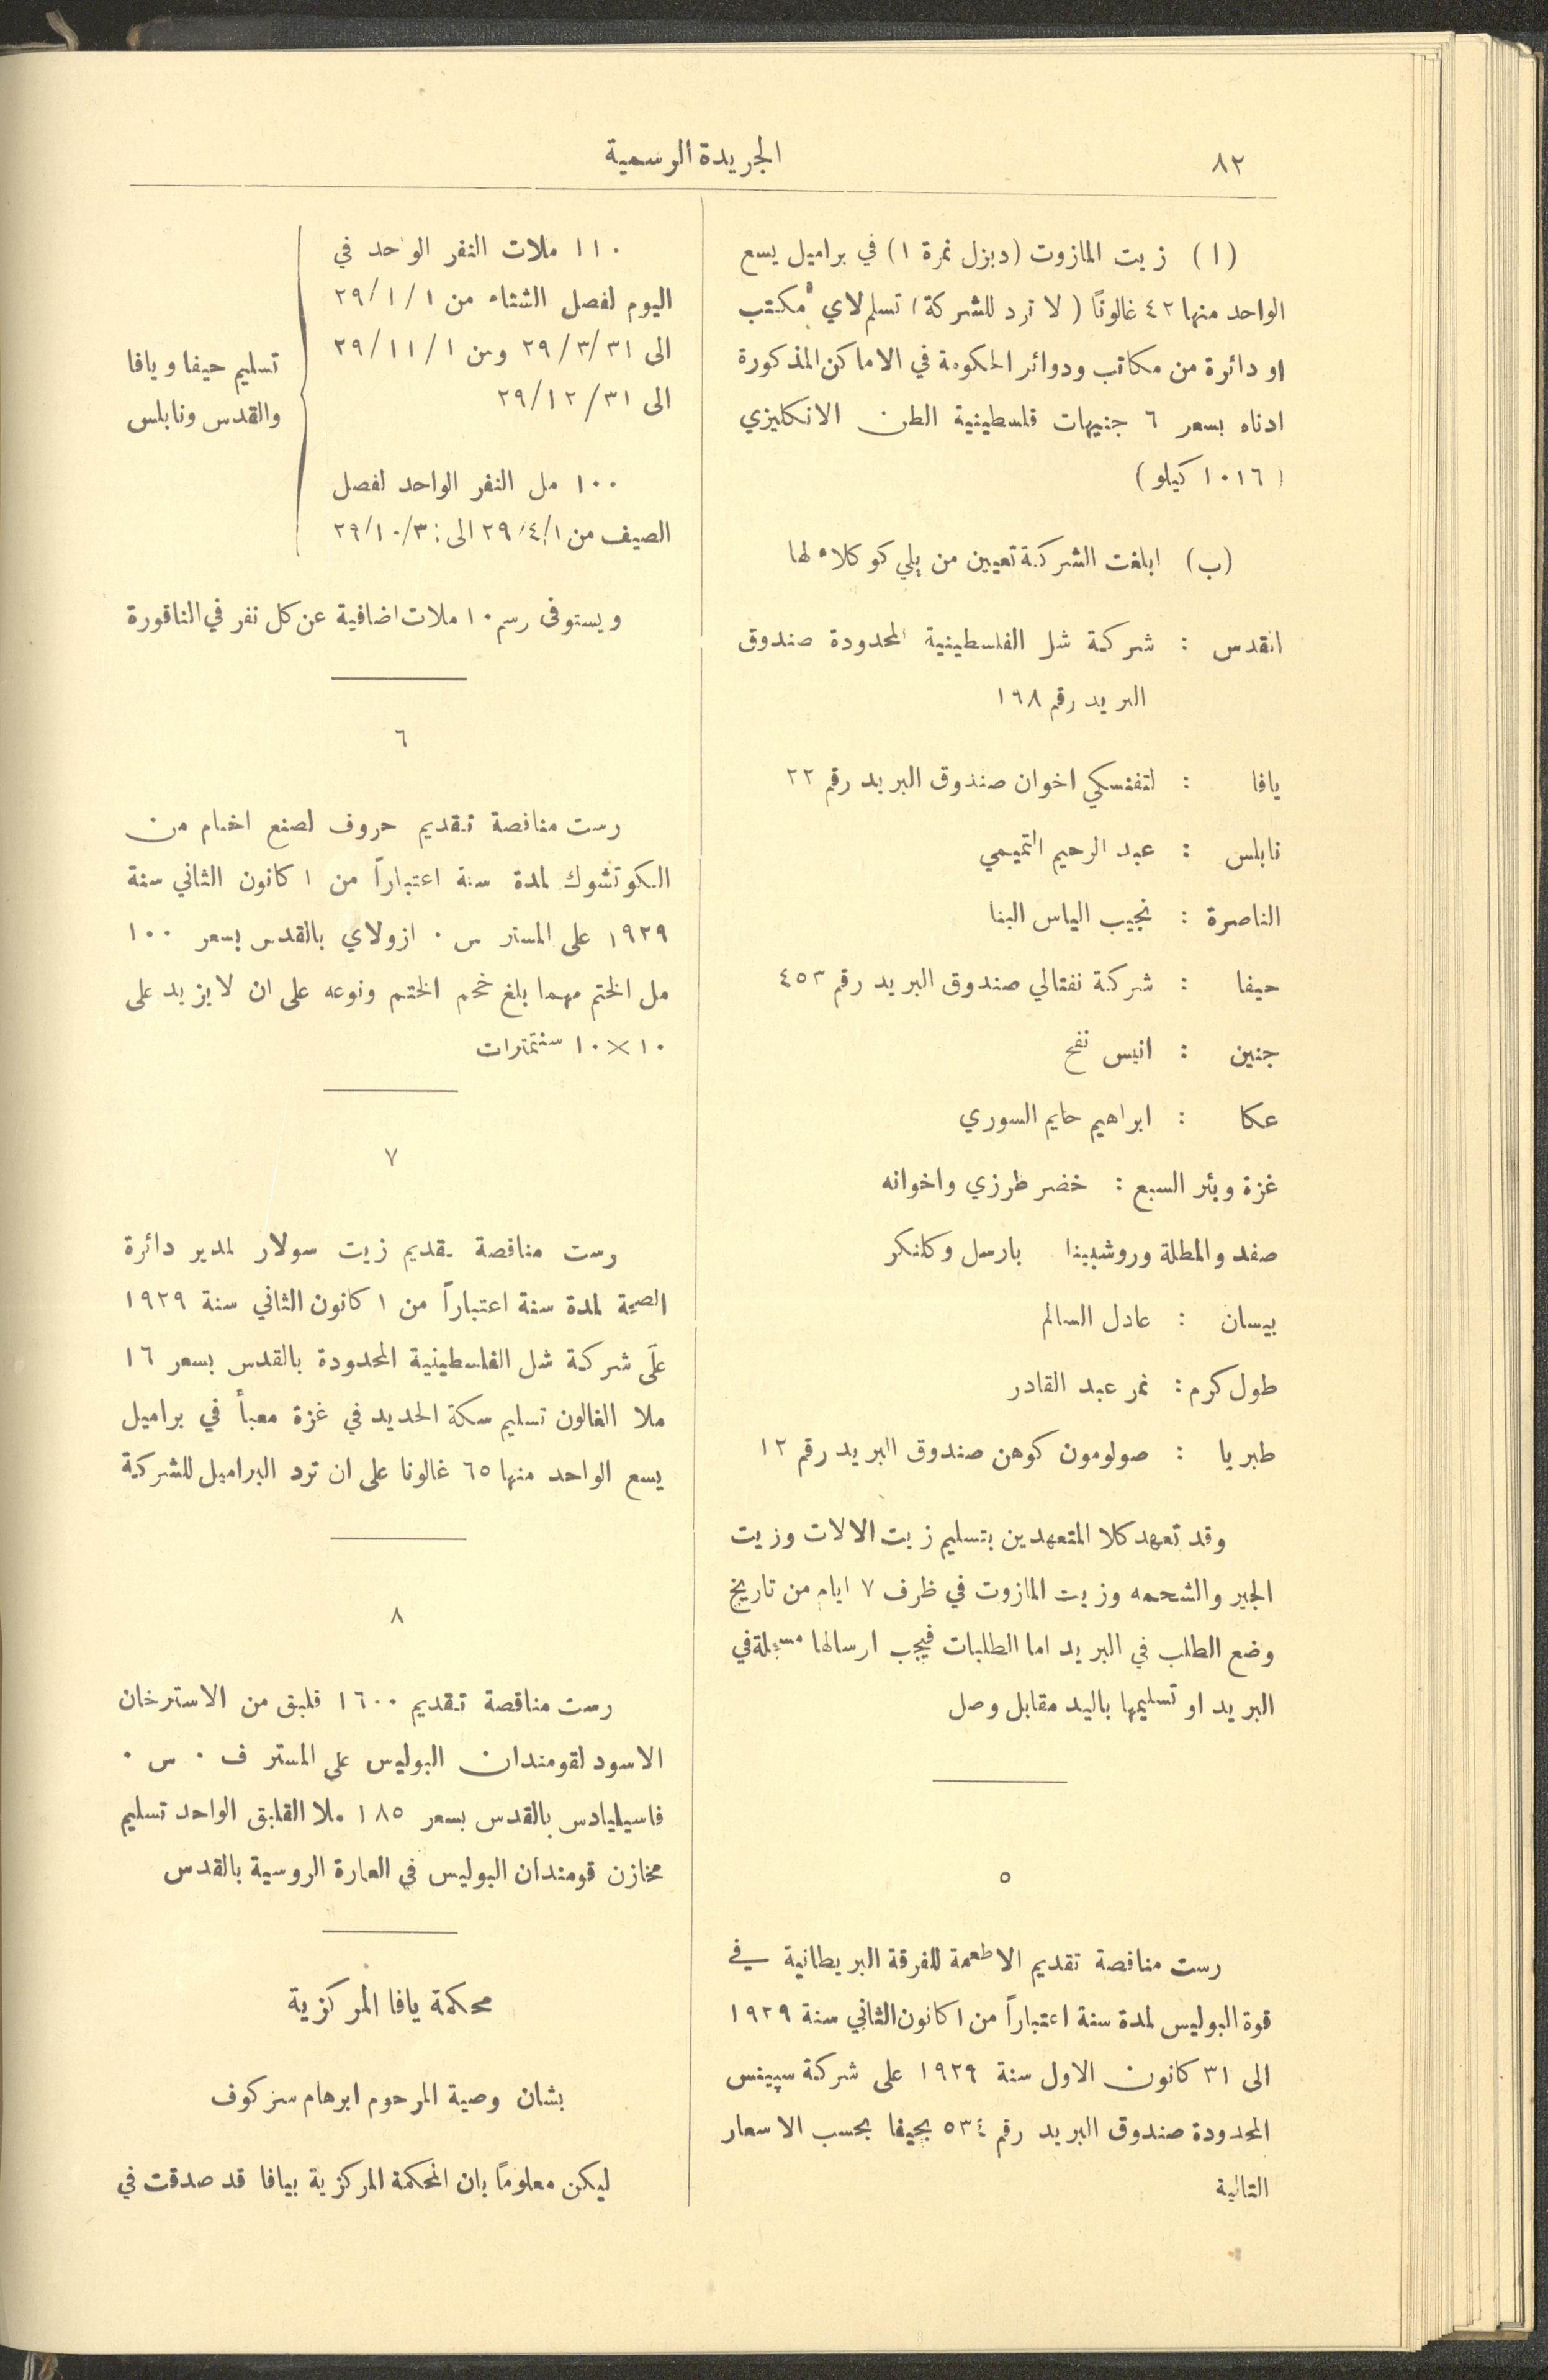 ٨٢
الجريدة الرسمية
(ا) زيت المازوت (ديزل نمرة ١) في براميل يسع
الواحد منها ٤٢ غالونًا (لا ترد للشركة) تسلم لاي مكتب
او دائرة من مكاتب ودوائر الحكومة في الاماكن المذكورة
ادناه بسعر ٦ جنيهات فلسطينية الطن الانكليزي
(١٠١٦ كيلو)
(ب) ابلغت الشركة تعيين من يلي كوكلاء لها
القدس : شركة شل الفلسطينية المحدودة صندوق
البريد رقم ١٩٨
يافا : لتفنسكي اخوان صندوق البريد رقم ٢٢
نابلس : عبد الرحيم التميمي
الناصرة : نجيب الياس البنا
حيفا : شركة نفتالي صندوق البريد رقم ٤٥٣
جنين : انيس نفح
عكا : ابراهيم حايم السوري
غزة وبئر السبع : خضر طرزي واخوانه
صفد والمطلة وروشبينا بارسل وكلنكر
بيسان : عادل السالم
طول كرم : نمر عبد القادر
طبريا : صولومون كوهن صندوق البريد رقم ١٢
وقد تعهد كلا المتعهدين بتسليم زيت الالات وزيت
الجير والشحمه وزيت المازوت في ظرف ٧ ايام من تاريخ
وضع الطلب في البريد اما الطلبات فيجب ارسالها مسجلة في
البريد او تسليمها باليد مقابل وصل
٥
رست مناقصة تقديم الاطعمة للفرقة البريطانية في
قوة البوليس لمدة سنة اعتباراً من ١ كانون الثاني سنة ١٩٢٩
الى ٣١ كانون الاول سنة ١٩٢٩ على شركة سپينس
المحدودة صندوق البريد رقم ٥٣٤ بحيفا بحسب الاسعار
التالية
١١٠ ملات النفر الواحد في
اليوم لفصل الشتاء من ٢٩/١/١
الى ٢٩/٣/٣١ ومن ٢٩/١١/١
الى ٢٩/١٢/٣١
١٠٠ مل النفر الواحد لفصل
الصيف من ٢٩/٤/١ الى ٢٩/١٠/٣
تسليم حيفا ويافا
والقدس ونابلس
ويستوفى رسم ١٠ ملات اضافية عن كل نفر في الناقورة
٦
رست مناقصة تقديم حروف لصنع اختام من
الكوتشوك لمدة سنة اعتباراً من ١ كانون الثاني سنة
١٩٢٩ على المستر س ٠ ازولاي بالقدس بسعر ١٠٠
مل الختم مهما بلغ حجم الختم ونوعه على ان لا يزيد على
١٠×١٠ سنتمترات
٧
رست مناقصة تقديم زيت سولار لمدير دائرة
الصحة لمدة سنة اعتباراً من ١ كانون الثاني سنة ١٩٢٩
على شركة شل الفلسطينية المحدودة بالقدس بسعر ١٦
ملا الغالون تسليم سكة الحديد في غزة معبأ في براميل
يسع الواحد منها ٦٥ غالونا على ان ترد البراميل للشركة
٨
رست مناقصة تقديم ١٦٠٠ قلبق من الاسترخان
الاسود لقومندان البوليس على المستر ف ٠ س ٠
فاسيليادس بالقدس بسعر ١٨٥ ملا القلبق الواحد تسليم
مخازن قومندان البوليس في العمارة الروسية بالقدس
محكمة يافا المركزية
بشان وصية المرحوم ابرهام سزكوف
ليكن معلومًا بان المحكمة المركزية بيافا قد صدقت في